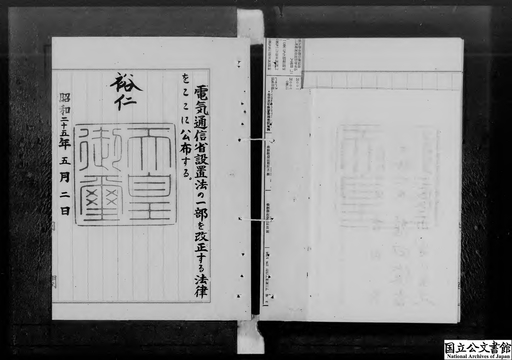 電気通信省設置法の一部を改正する法律
をここに公布する。
裕仁
天皇
御璽
昭和二十五年五月二日
国立公文書館
National Archives of Japan